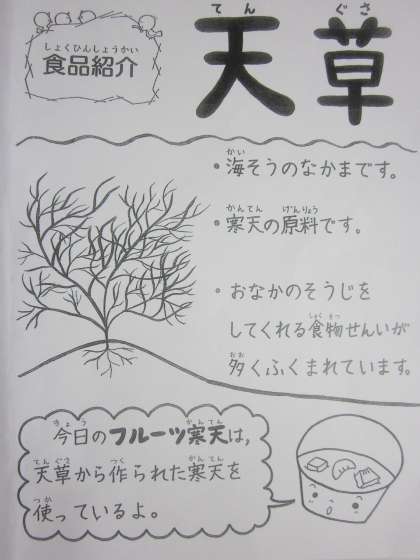 しょくひんしょうかい
食品紹介
てんぐさ
天草
かい
・海そうのなかまです。
かんてん げんりょう
・寒天の原料です。
・おなかのそうじを
しょくもつ
してくれる食物せんいが
おお
多くふくまれています。
きょう かんてん
今日のフルーツ寒天は,
てんぐさ つく かんてん
天草から作られた寒天を
つか
使っているよ。